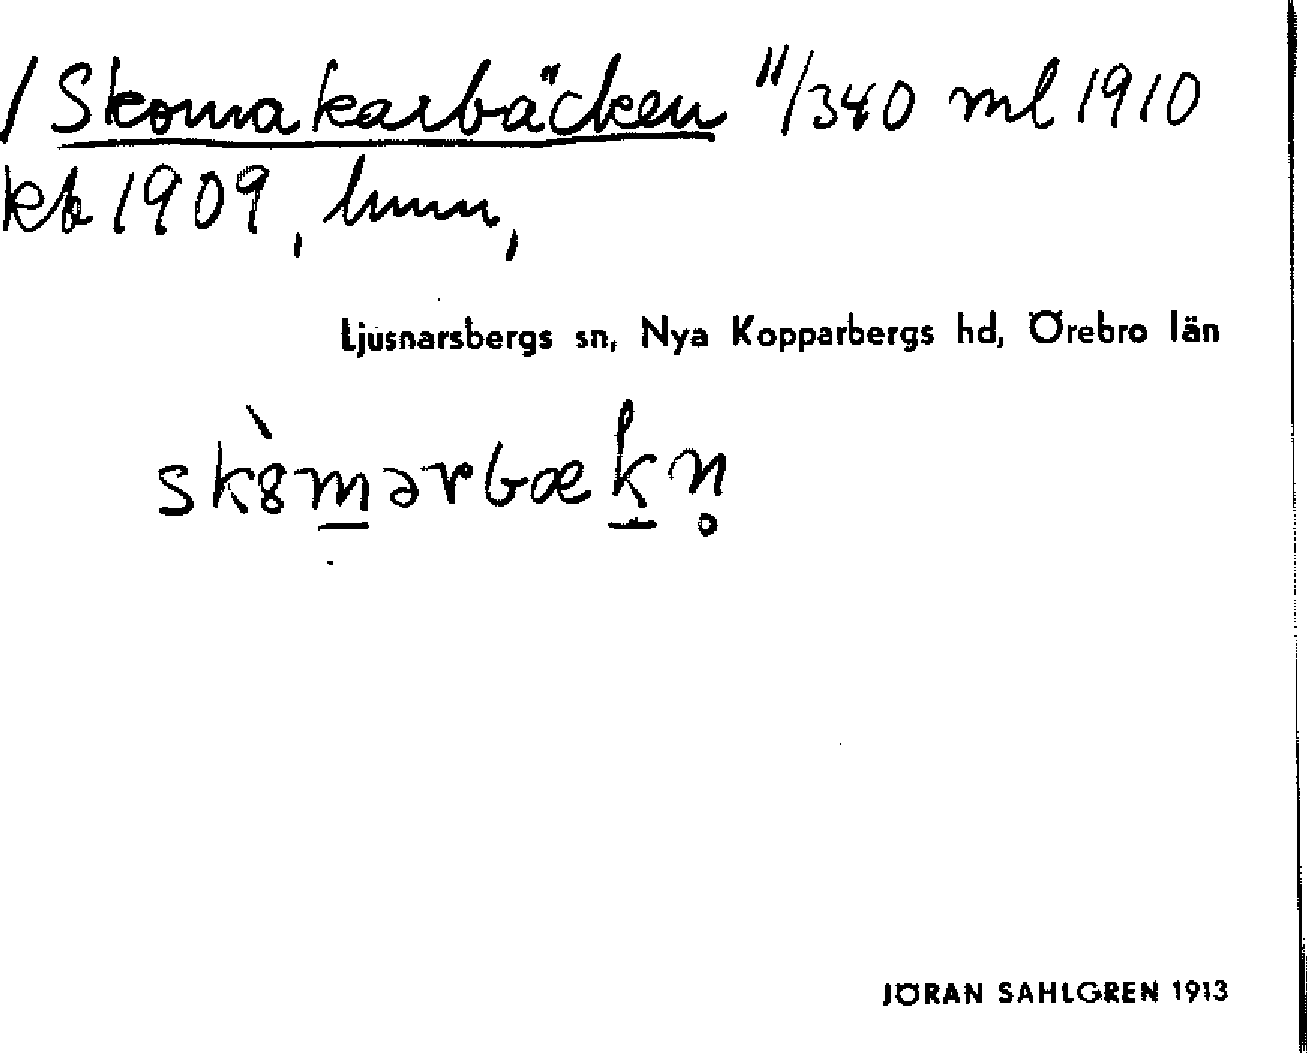 /Skomakarbäcken "/340 ml 1910
kb 1909,
Ljusnarsbergs sn, Nya Kopparbergs hd, Örebro län
skò̀8m̲ərbæk̲n̥
JÖRAN SAHLGREN 1913